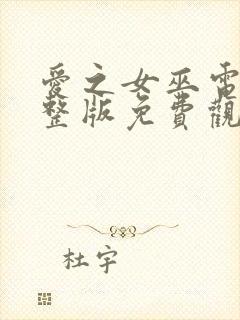 愛之女巫電
整版免費觀
杜宇